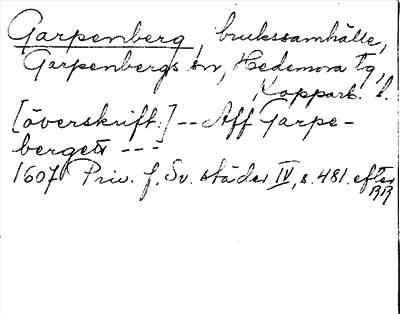 Garpenberg, brukssamhälle,
Garpenbergs sn, Hedemora tg,
Kopparb. l.
[överskrift:] -- Aff Garpe-
berget ---
1607 Priv. f. Sv. städer IV, s. 481. efter
RR